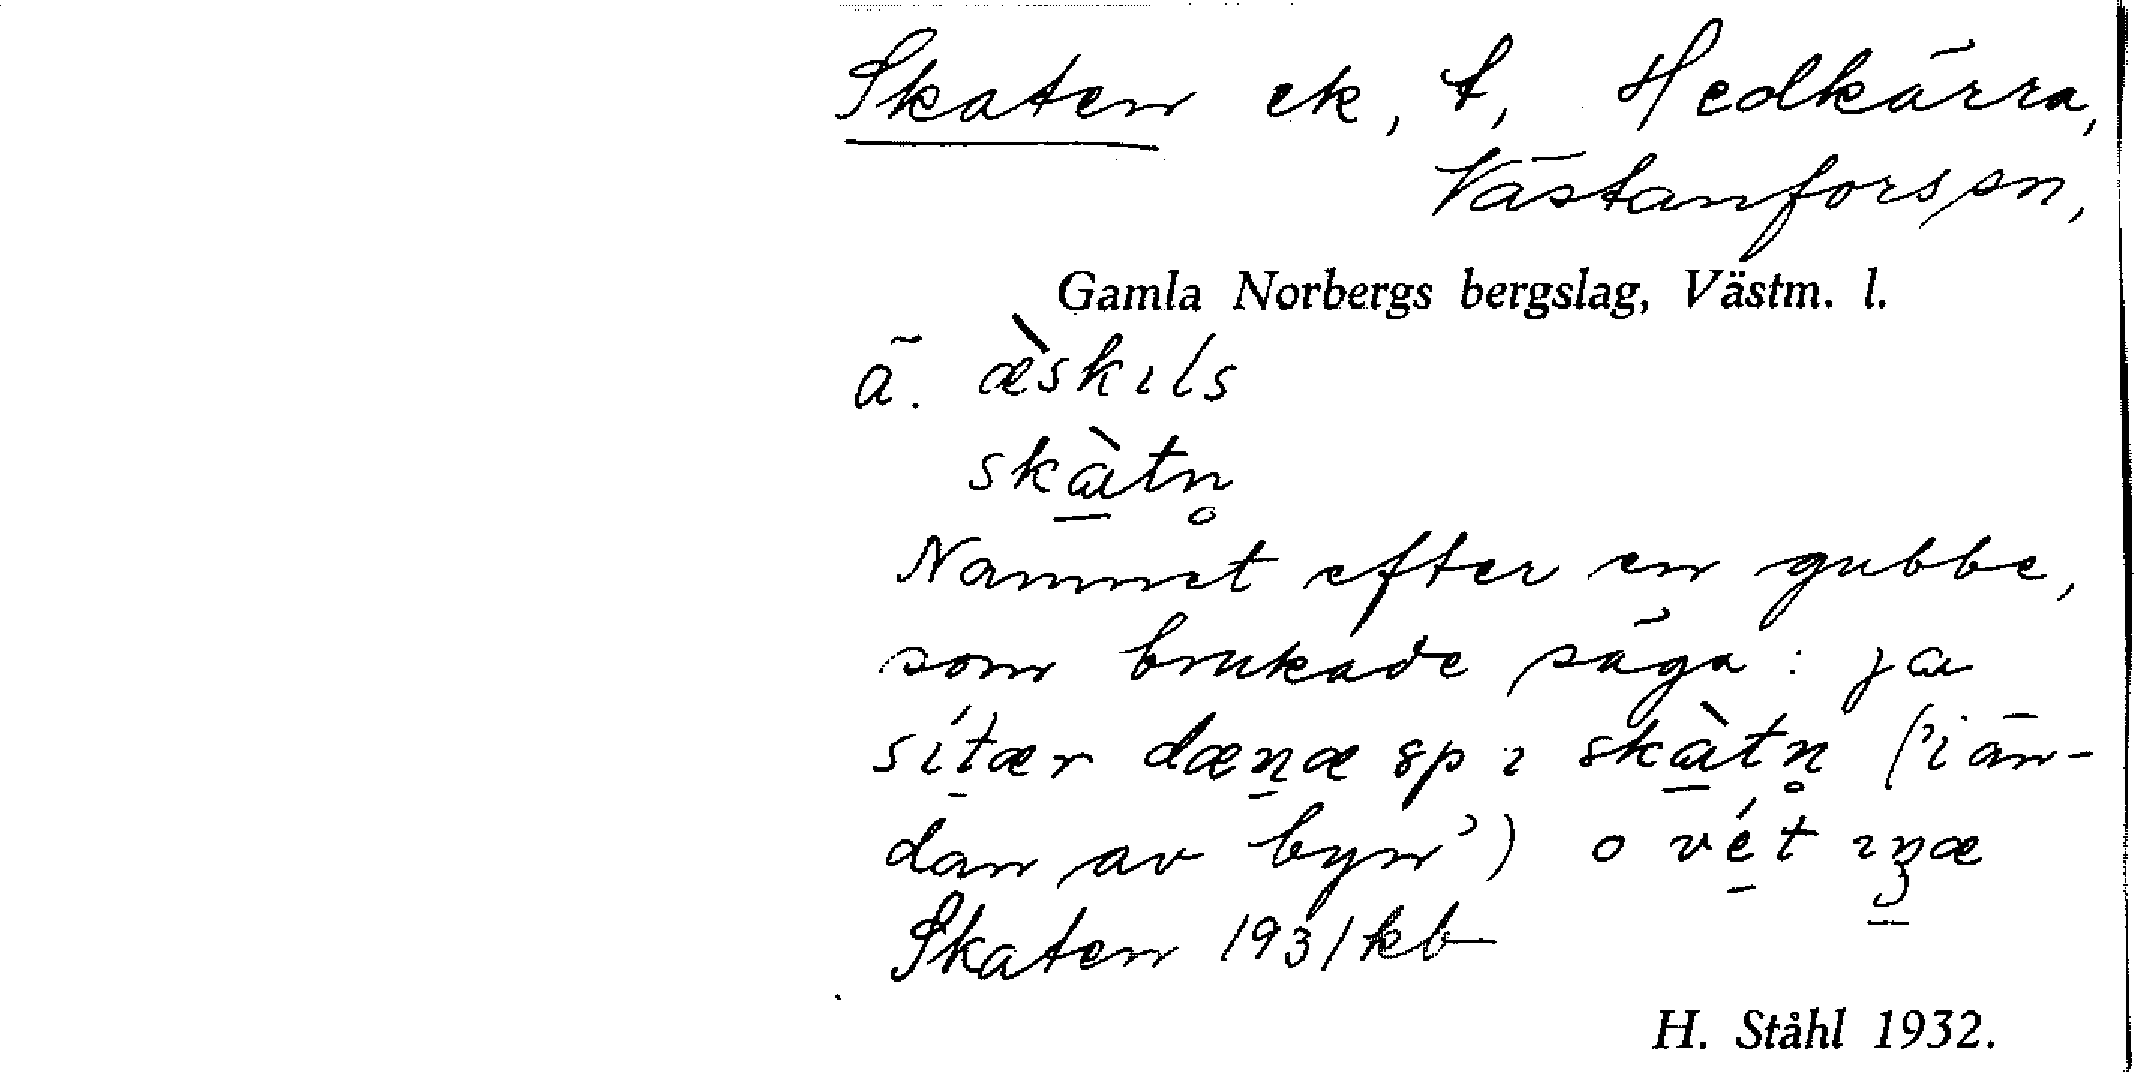 Skaten ek, t, Hedkärra,
Västanfors sn,
Gamla Norbergs bergslag, Västm. l.
ä. æ̀skıls
skàtn̥
Namnet efter en gubbe,
som brukade säga: ja
sítær dænæ sp ı skàtn̥ ('i än-
dan av byn') o vét
Skaten 1931 kb
H. Ståhl 1932.